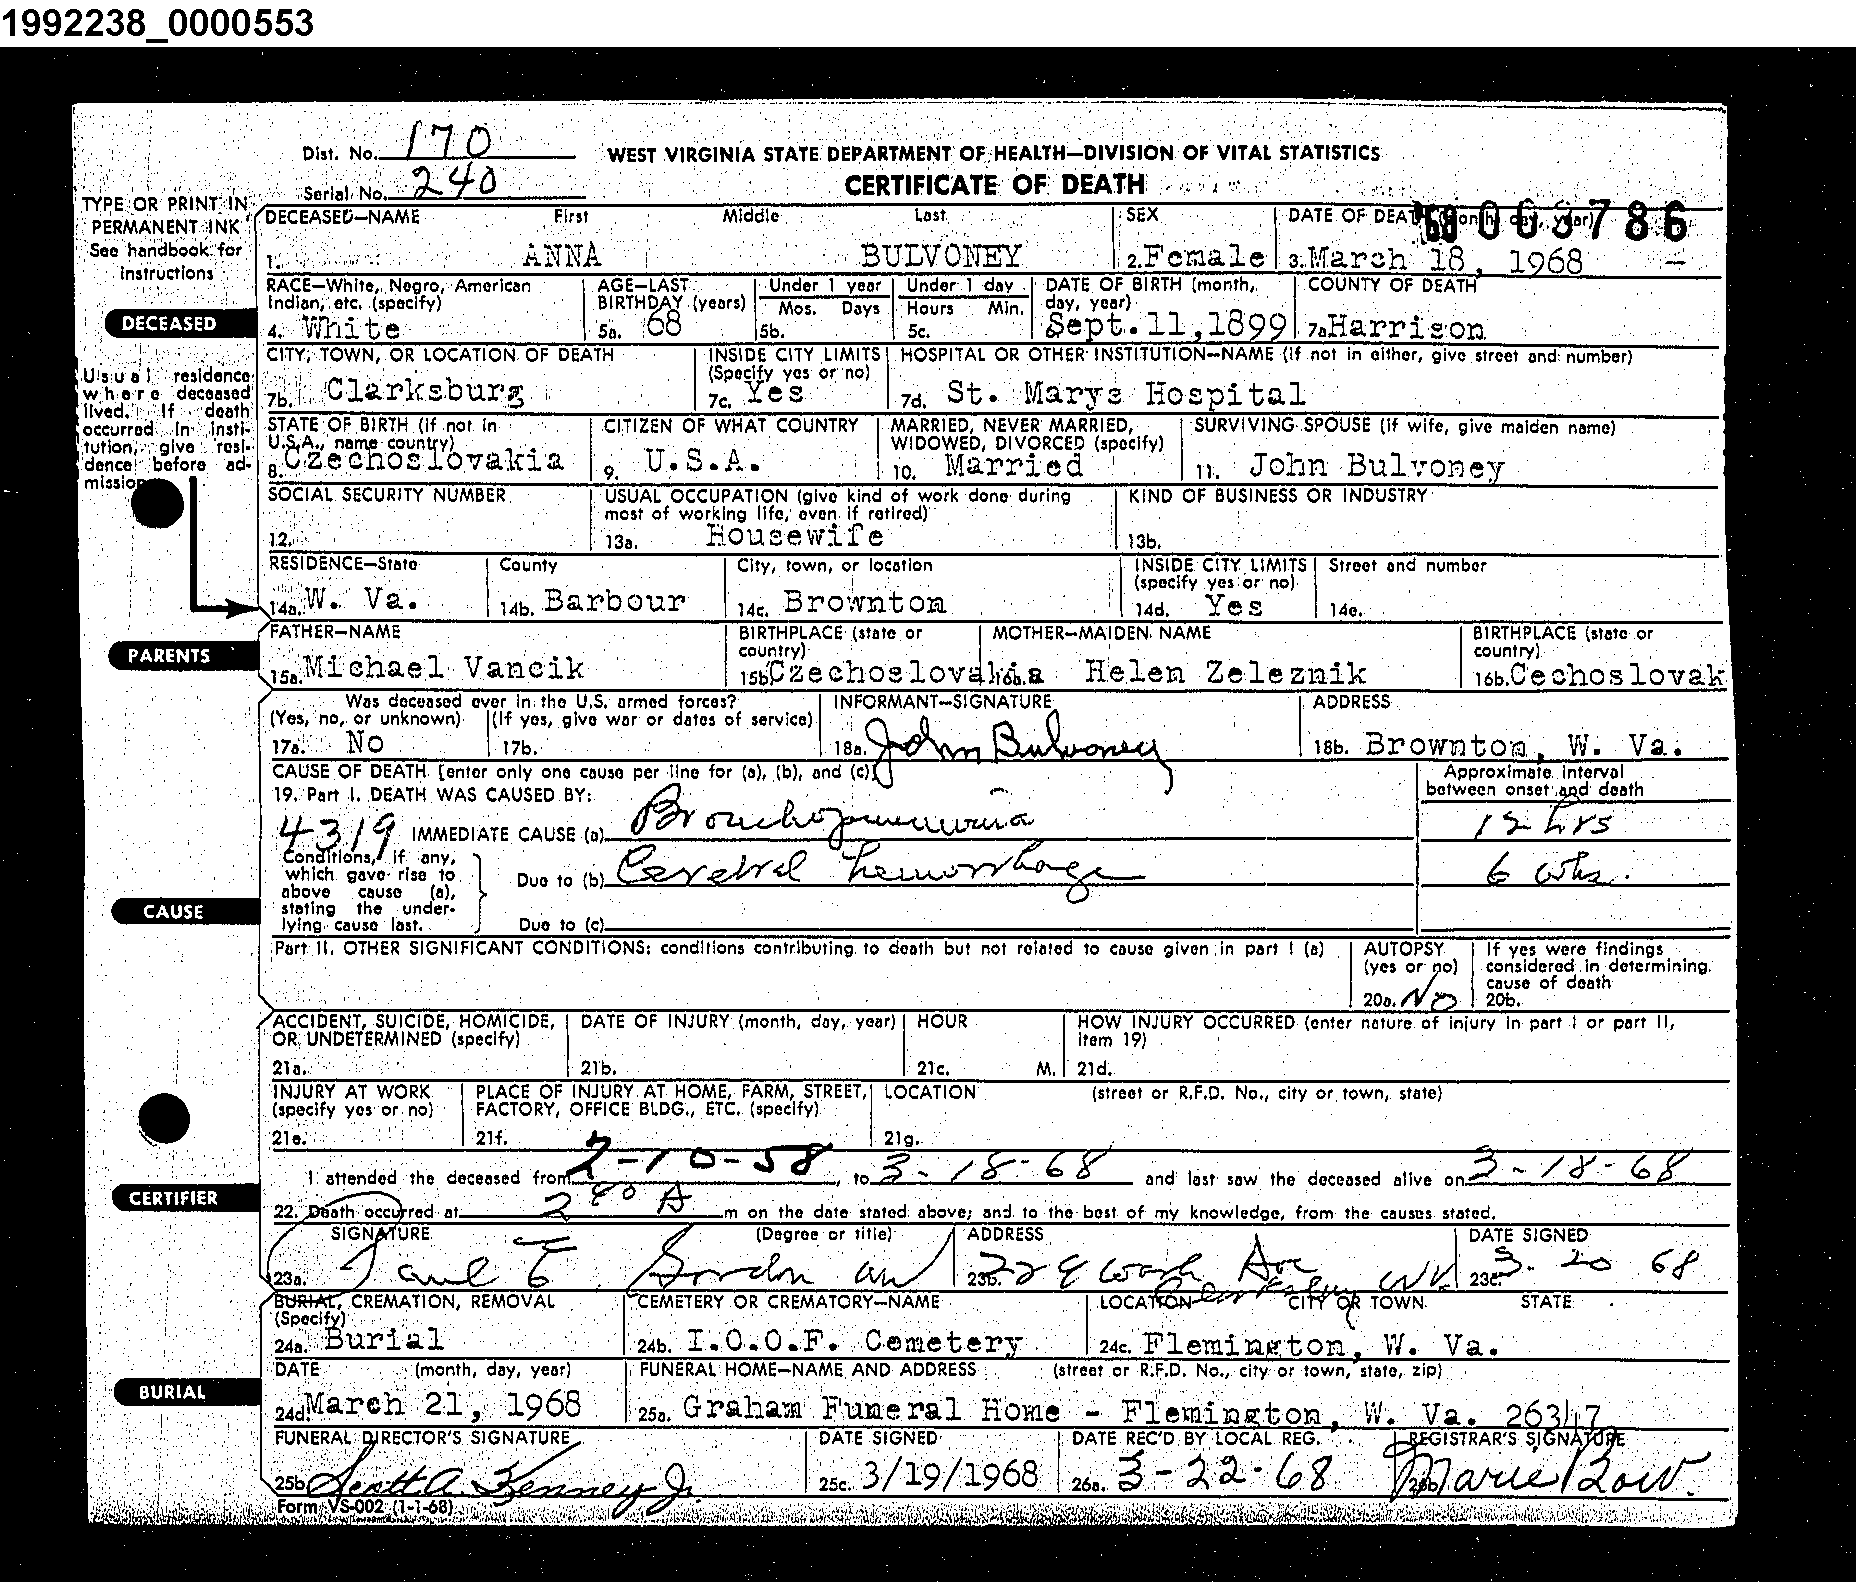 1992238_0000553
Dist. No. 170
WEST VIRGINIA STATE DEPARTMENT OF HEALTH—DIVISION OF VITAL STATISTICS
Serial No. 240
CERTIFICATE OF DEATH
TYPE OR PRINT IN
PERMANENT INK
See handbook for
instructions
DECEASED—NAME First Middle Last SEX DATE OF DEATH (month, day, year)
786
1. ANNA BULVONEY 2. Female 3. March 18, 1968
RACE—White, Negro, American
Indian, etc. (specify)
AGE—LAST
BIRTHDAY (years)
Under 1 year
Mos. Days
Under 1 day
Hours Min.
DATE OF BIRTH (month,
day, year)
COUNTY OF DEATH
DECEASED
4. White 5a. 68 5b. 5c. Sept.11,1899 7a Harrison
CITY, TOWN, OR LOCATION OF DEATH
INSIDE CITY LIMITS
(Specify yes or no)
HOSPITAL OR OTHER INSTITUTION—NAME (If not in either, give street and number)
7b. Clarksburg 7c. Yes 7d. St. Marys Hospital
Usual residence
where deceased
lived. If death
occurred in insti-
tution, give resi-
dence before ad-
mission
STATE OF BIRTH (if not in
U.S.A., name country)
CITIZEN OF WHAT COUNTRY
MARRIED, NEVER MARRIED,
WIDOWED, DIVORCED (specify)
SURVIVING SPOUSE (if wife, give maiden name)
8. Czechoslovakia 9. U.S.A. 10. Married 11. John Bulvoney
SOCIAL SECURITY NUMBER
USUAL OCCUPATION (give kind of work done during
most of working life, even if retired)
KIND OF BUSINESS OR INDUSTRY
12. 13a. Housewife 13b.
RESIDENCE—State County City, town, or location
INSIDE CITY LIMITS
(specify yes or no)
Street and number
14a. W. Va. 14b. Barbour 14c. Brownton 14d. Yes 14e.
PARENTS
FATHER—NAME
BIRTHPLACE (state or
country)
MOTHER—MAIDEN NAME
BIRTHPLACE (state or
country)
15a. Michael Vancik 15b Czechoslovakia 16a. Helen Zeleznik 16b. Cechoslovak
Was deceased ever in the U.S. armed forces?
(Yes, no, or unknown) (If yes, give war or dates of service)
INFORMANT—SIGNATURE
ADDRESS
17a. No 17b. 18a. John Bulvoney 18b. Brownton, W. Va.
CAUSE OF DEATH [enter only one cause per line for (a), (b), and (c)]
Approximate interval
between onset and death
19. Part I. DEATH WAS CAUSED BY:
4319 IMMEDIATE CAUSE (a) Bronchopneumonia 12 hrs
Conditions, if any,
which gave rise to
above cause (a),
stating the under-
lying cause last.
Due to (b) Cerebral hemorrhage 6 wks.
Due to (c)
CAUSE
Part II. OTHER SIGNIFICANT CONDITIONS: conditions contributing to death but not related to cause given in part I (a)
AUTOPSY
(yes or no)
20a. No
If yes were findings
considered in determining
cause of death
20b.
ACCIDENT, SUICIDE, HOMICIDE,
OR UNDETERMINED (specify)
DATE OF INJURY (month, day, year)
HOUR
HOW INJURY OCCURRED (enter nature of injury in part I or part II,
item 19)
21a. 21b. 21c. M. 21d.
INJURY AT WORK
(specify yes or no)
PLACE OF INJURY AT HOME, FARM, STREET,
FACTORY, OFFICE BLDG., ETC. (specify)
LOCATION (street or R.F.D. No., city or town, state)
21e. 21f. 21g.
I attended the deceased from 2-10-58, to 3-18-68 and last saw the deceased alive on 3-18-68
CERTIFIER
22. Death occurred at 2 40 A m on the date stated above; and to the best of my knowledge, from the causes stated.
SIGNATURE (Degree or title) ADDRESS DATE SIGNED
23a. Paul E Gordon 23b. Wash Ave 23c. 3. 20 68
Clarksburg WV
BURIAL, CREMATION, REMOVAL
(Specify)
CEMETERY OR CREMATORY—NAME
LOCATION CITY OR TOWN STATE
24a. Burial 24b. I.O.O.F. Cemetery 24c. Flemington, W. Va.
BURIAL
DATE (month, day, year) FUNERAL HOME—NAME AND ADDRESS (street or R.F.D. No., city or town, state, zip)
24d. March 21, 1968 25a. Graham Funeral Home - Flemington, W. Va. 26347
FUNERAL DIRECTOR'S SIGNATURE DATE SIGNED DATE REC'D BY LOCAL REG. REGISTRAR'S SIGNATURE
25b Scott A. Kenney Jr. 25c. 3/19/1968 26a. 3-22-68 26b. Marie Row.
Form VS-002 (1-1-68)